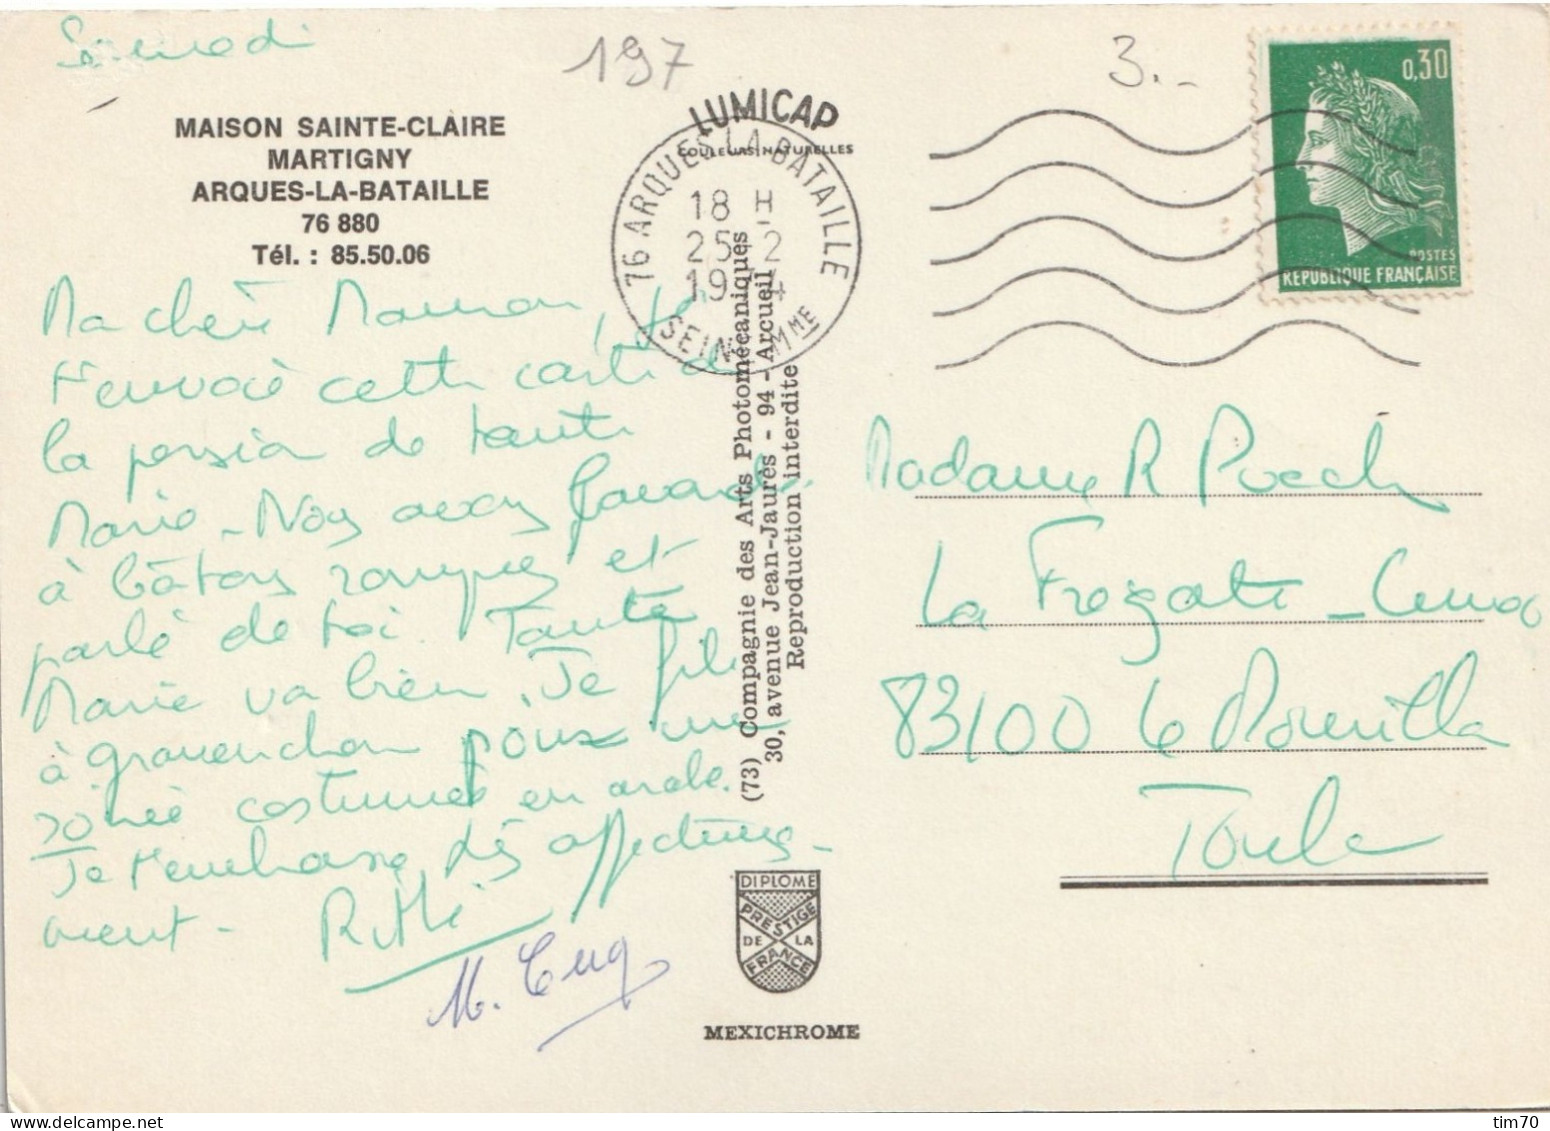 Samedi
197
3.-
MAISON SAINTE-CLAIRE
MARTIGNY
ARQUES-LA-BATAILLE
76 880
Tél. : 85.50.06
LUMICAP
COULEURS NATURELLES
76 ARQUES LA BATAILLE
18 H
25-2
1974
SEINE MME
0,30
POSTES
REPUBLIQUE FRANÇAISE
Ma chère Maman, je
t'envoie cette carte de
la pension de tante
Marie - Nous avons bavardé
à bâtons rompus et
parlé de toi. Tante
Marie va bien. Je file
à gravenchon pour une
soirée costumée en arabe.
Je t'embrasse très affectueuse-
ment -
M.
(73) Compagnie des Arts Photomécaniques
30, avenue Jean-Jaurès - 94 - Arcueil
Reproduction interdite
Madame R
La Frégate -
83100 Le Mourillon
Toulon
DIPLOME
PRESTIGE
DE LA
FRANCE
MEXICHROME
tim70